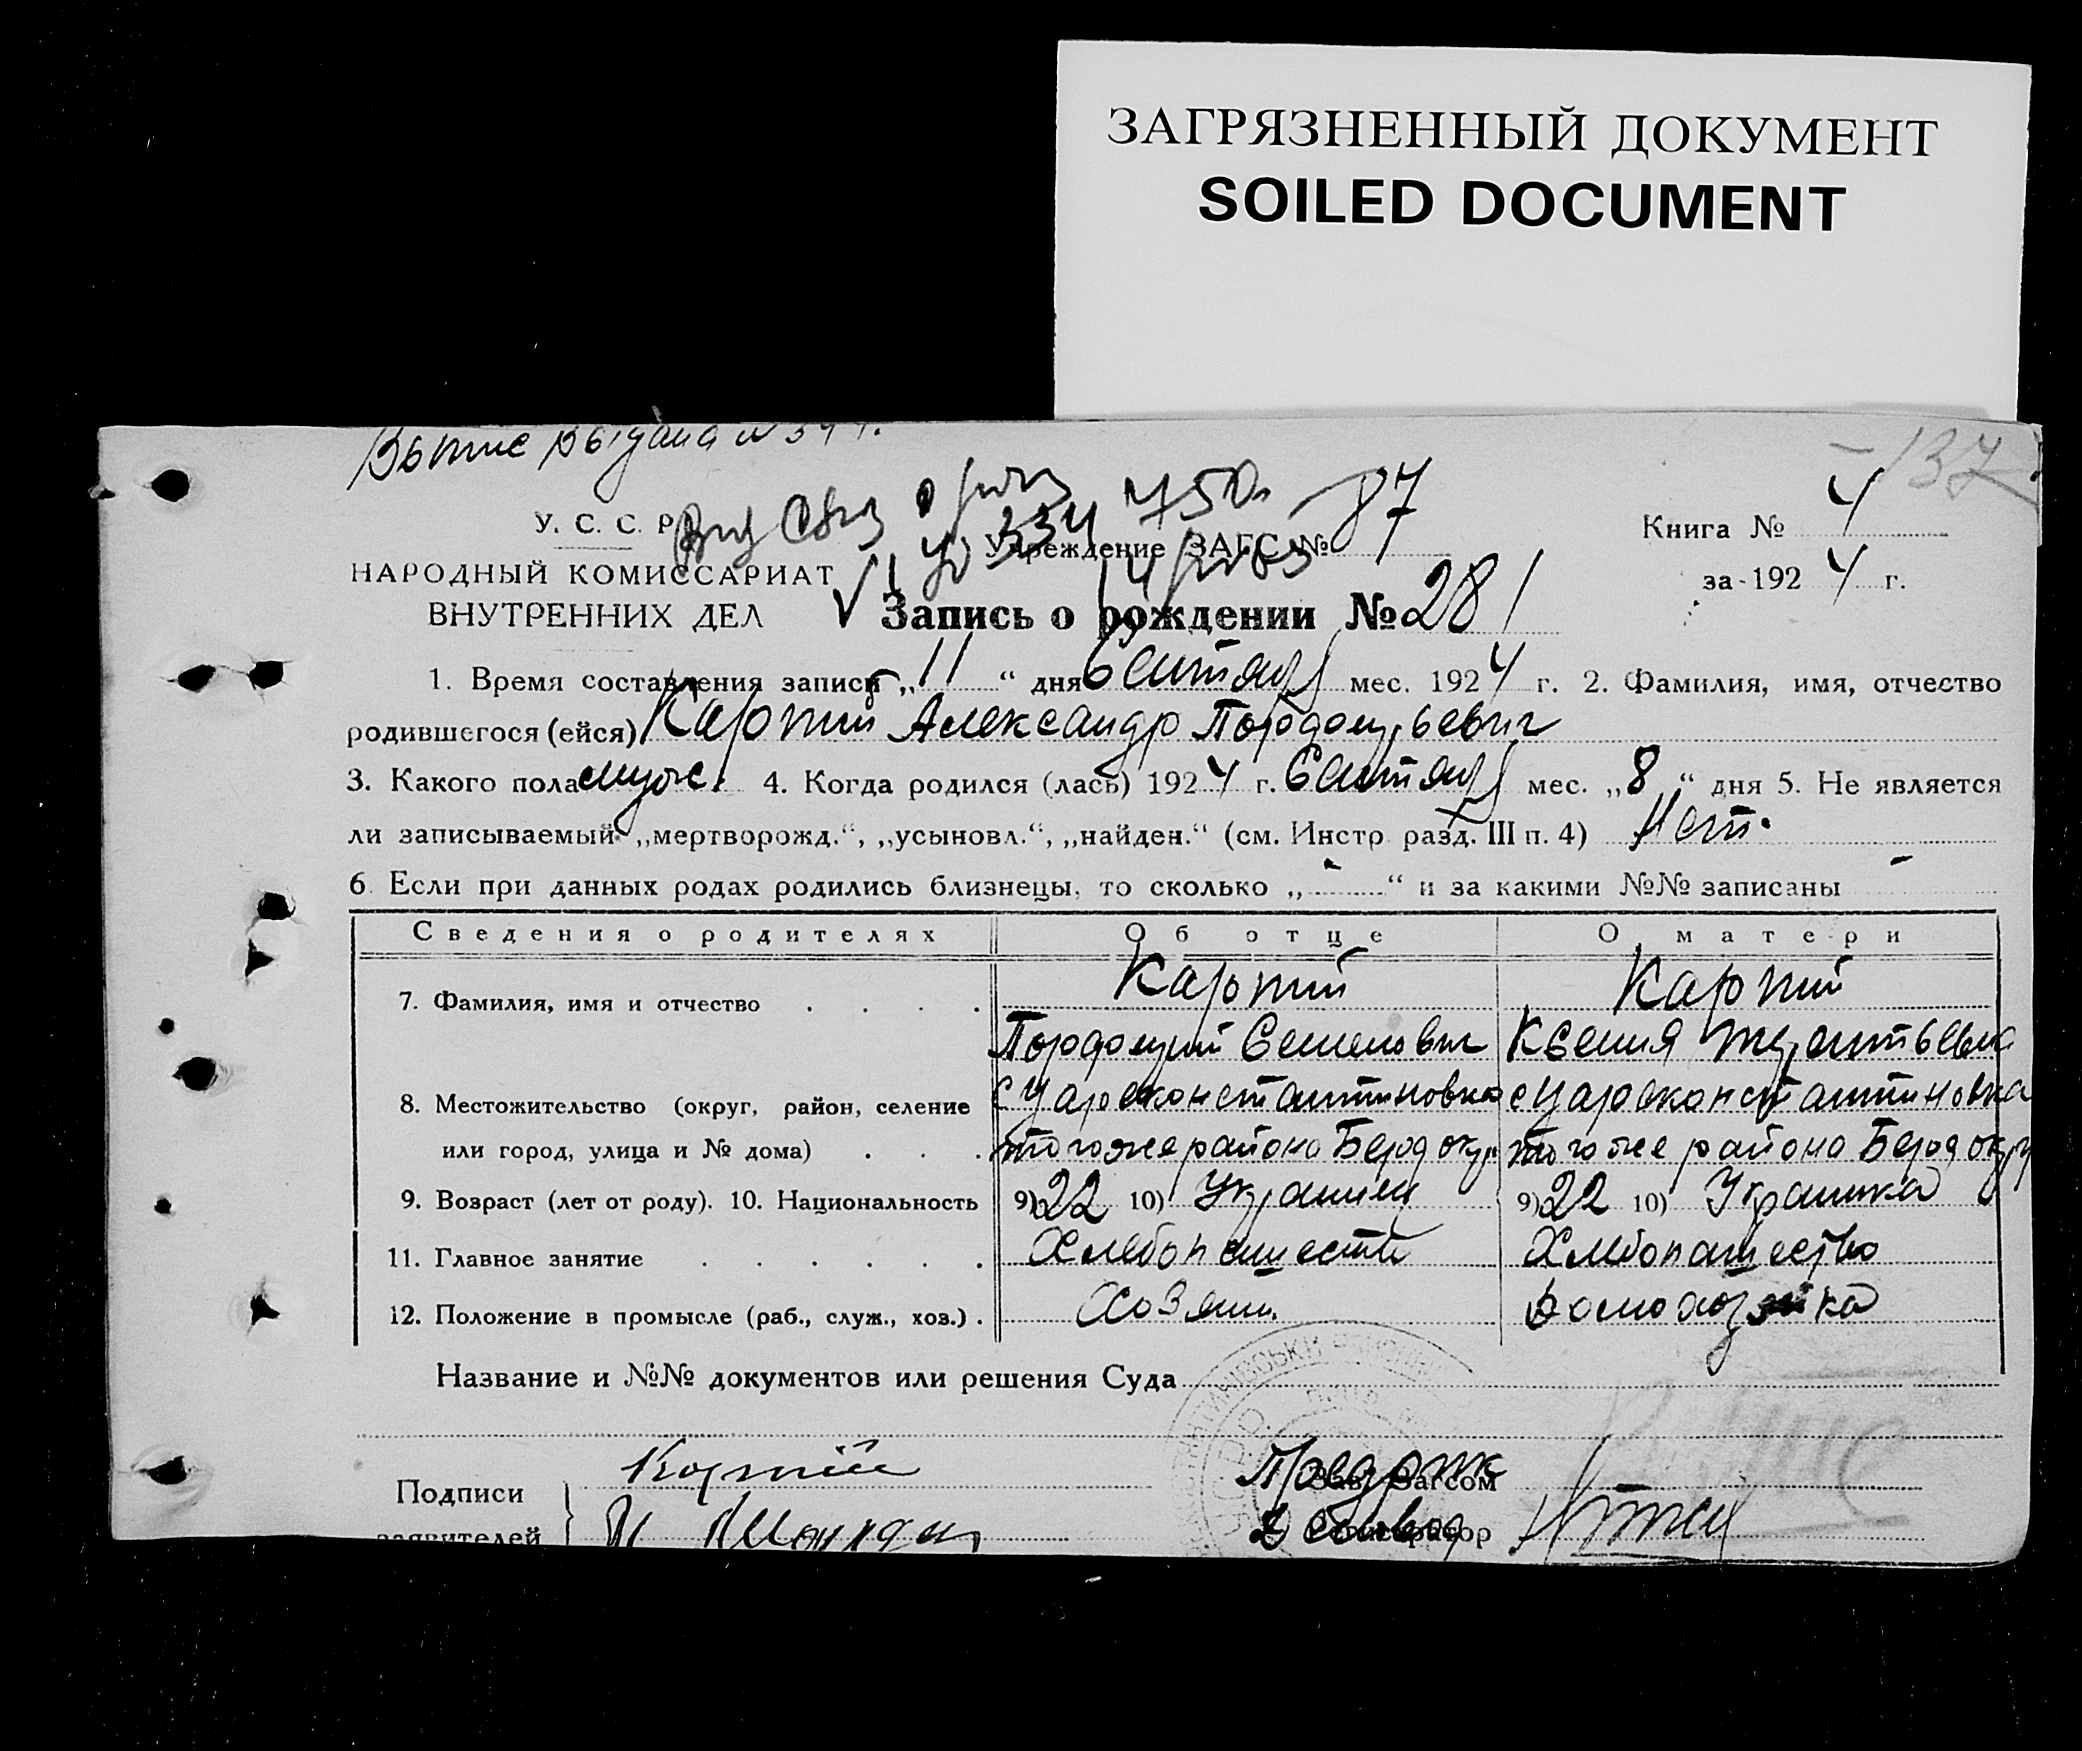 ЗАГРЯЗНЕННЫЙ ДОКУМЕНТ
SOILED DOCUMENT
137
У. С. С. Р.
Учреждение ЗАГС № 87
Книга № 4
НАРОДНЫЙ КОМИССАРИАТ
за 192 4 г.
ВНУТРЕННИХ ДЕЛ
Запись о рождении № 281
1. Время составления записи „ 11 “ дня Сентяб мес. 192 4 г. 2. Фамилия, имя, отчество
родившегося (ейся) Карпий Александр
3. Какого пола муж. 4. Когда родился (лась) 192 4 г. Сентяб мес. „ 8 “ дня 5. Не является
ли записываемый „мертворожд.“, „усыновл.“, „найден.“ (см. Инстр. разд. III п. 4) Нет.
6. Если при данных родах родились близнецы, то сколько „ - “ и за какими №№ записаны -
Сведения о родителях Об отце О матери
7. Фамилия, имя и отчество . . . . Карпий Карпий
Семенович Ксения
8. Местожительство (округ, район, селение с Цареконстантиновка с Цареконстантиновка
или город, улица и № дома) . . . тогоже района Берд окр тогоже района Берд окр
9. Возраст (лет от роду). 10. Национальность 9) 22 10) Украинец 9) 22 10) Украинка
11. Главное занятие . . . . . . Хлебопашеств Хлебопашество
12. Положение в промысле (раб., служ., хоз.) . Хозяин. Домохозяйка
Название и №№ документов или решения Суда
Подписи Карпій Зав. Загсом
заявителей